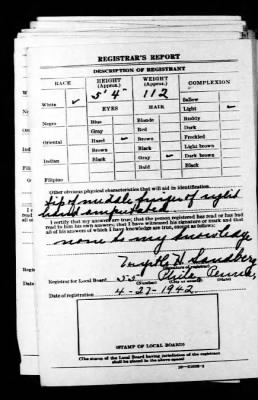 REGISTRAR'S REPORT
DESCRIPTION OF REGISTRANT
RACE HEIGHT (Approx.) WEIGHT (Approx.) COMPLEXION
5' 4" 112
White ✓ Sallow
EYES HAIR Light ✓
Negro Blue Blonde Ruddy
Gray Red Dark
Oriental Hazel ✓ Brown Freckled
Brown Black Light brown
Indian Black Gray ✓ Dark brown
Bald Black
Filipino
Other obvious physical characteristics that will aid in identification
tip of middle finger of right
hand amputated
I certify that my answers are true; that the person registered has read or has had
read to him his own answers; that I have witnessed his signature or mark and that
all of his answers of which I have knowledge are true, except as follows:
none to my knowledge
Myrtle H. Sandberg
(Signature of registrar)
Registrar for Local Board 55 Phila Penna,
(Number) (City or county) (State)
Date of registration 4-27-1942
(STAMP OF LOCAL BOARD)
(The stamp of the Local Board having jurisdiction of the registrant
shall be placed in the above space)